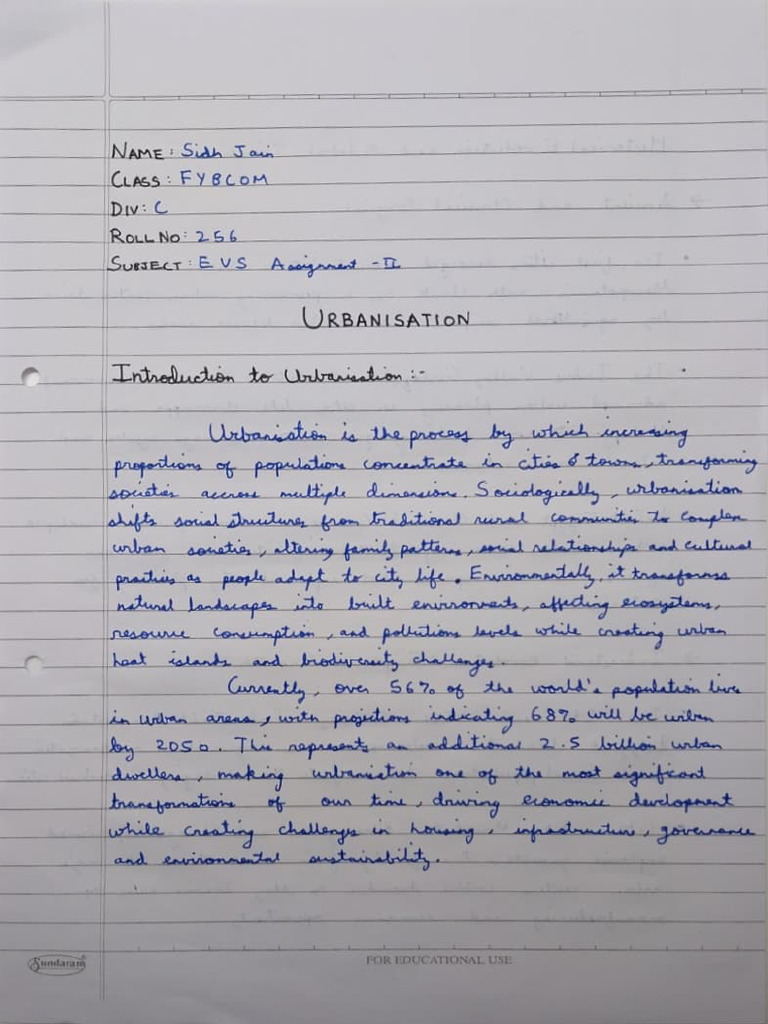 NAME: Sidh Jain
CLASS: FYBCOM
DIV: C
ROLL NO: 256
SUBJECT: EVS Assignment -II
URBANISATION
Introduction to Urbanisation :-
Urbanisation is the process by which increasing
proportions of populations concentrate in cities & towns, transforming
societies accross multiple dimensions. Sociologically, urbanisation
shifts social structures from traditional rural communities to complex
urban societies, altering family patterns, social relationships and cultural
practies as people adapt to city life. Environmentally, it transforms
natural landscapes into built environments, affecting ecosystems,
resource consumption, and pollutions levels while creating urban
heat islands and biodiversity challenges.
Currently, over 56% of the world's population lives
in urban areas, with projections indicating 68% will be urban
by 2050. This represents an additional 2.5 billion urban
dwellers, making urbanisation one of the most significant
transformations of our time, driving economic development
while creating challenges in housing, infrastructure, governance
and environmental sustainability.
Sundaram
FOR EDUCATIONAL USE